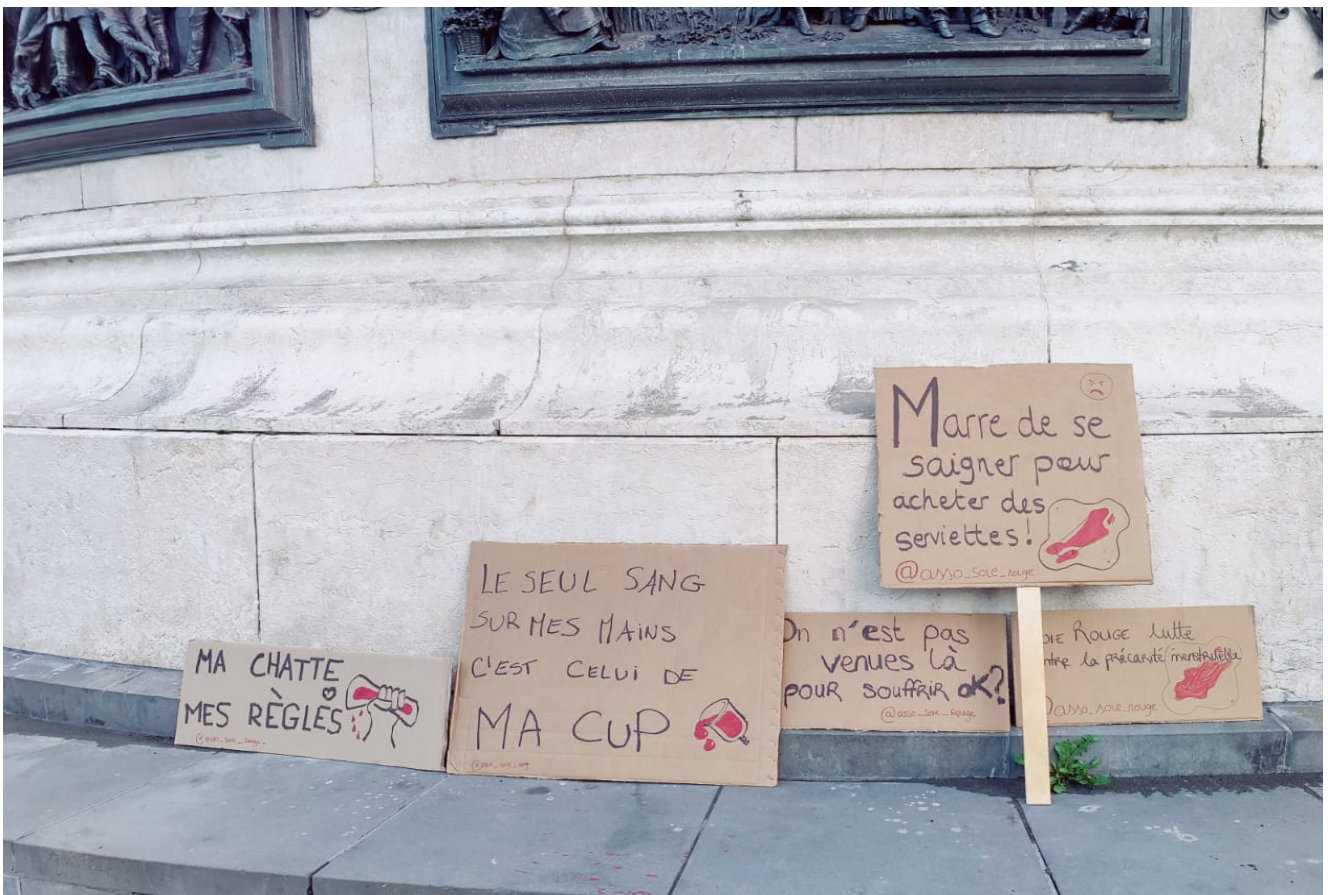 MA CHATTE
MES RÈGLES
@asso_soie_rouge
LE SEUL SANG
SUR MES MAINS
C'EST CELUI DE
MA CUP
Marre de se
saigner pour
acheter des
serviettes!
@asso_soie_rouge
On n'est pas
venues là
pour souffrir OK?
@asso_soie_rouge
ROUGE lutte
la précarité menstruelle
asso_soie_rouge